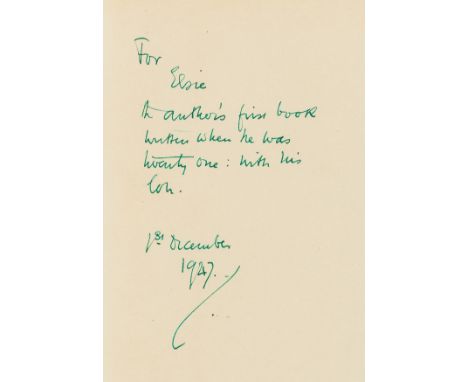 For
Elsie
th author's first book
written when he was
twenty one: with his
1st December
1947.